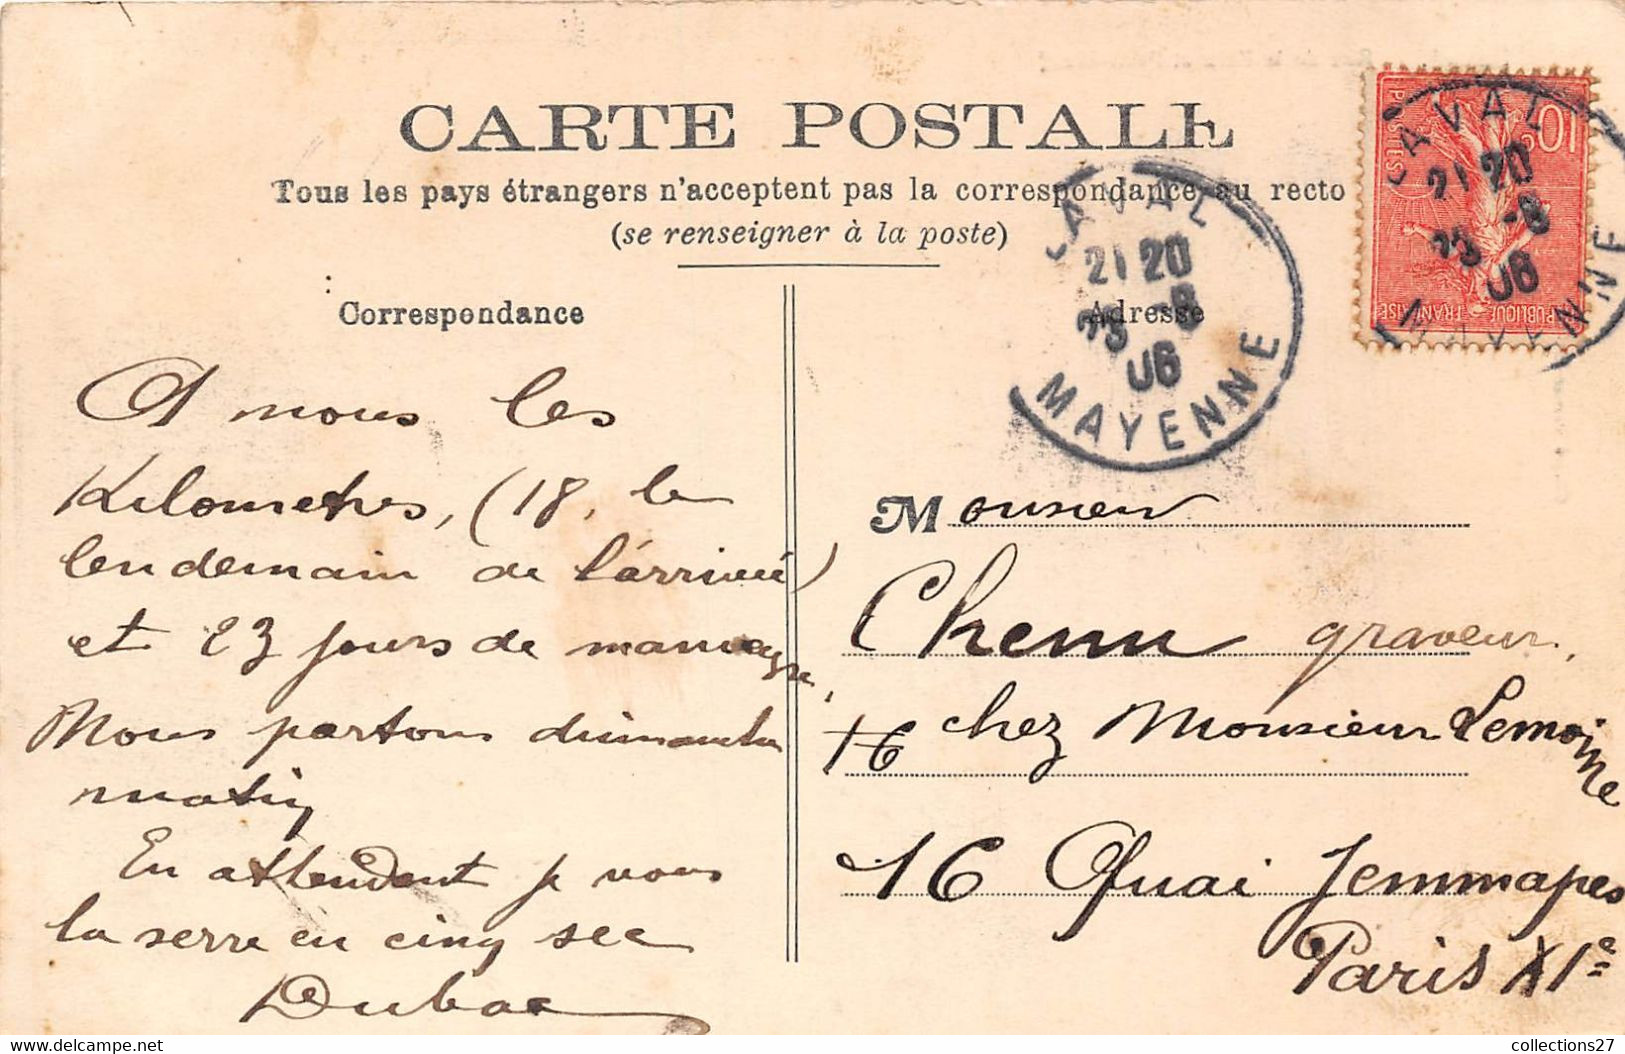 CARTE POSTALE
Tous les pays étrangers n'acceptent pas la correspondance au recto
(se renseigner à la poste)
Correspondance
A nous les
Kilometres, (18, le
lendemain de l'arrivée)
et 23 jours de manœuvre,
Nous partons dimanche
matin
En attendant je vous
la serre en cinq sec
Duboc
Adresse
Monsieur
Chenu graveur,
chez Monsieur Lemoine
16
16 Quai Jemmapes
Paris XIe
LAVAL
21 20
23 -8
06
MAYENNE
LAVAL
21 20
23 -8
06
MAYENNE
10c
POSTES
REPUBLIQUE FRANÇAISE
collections27